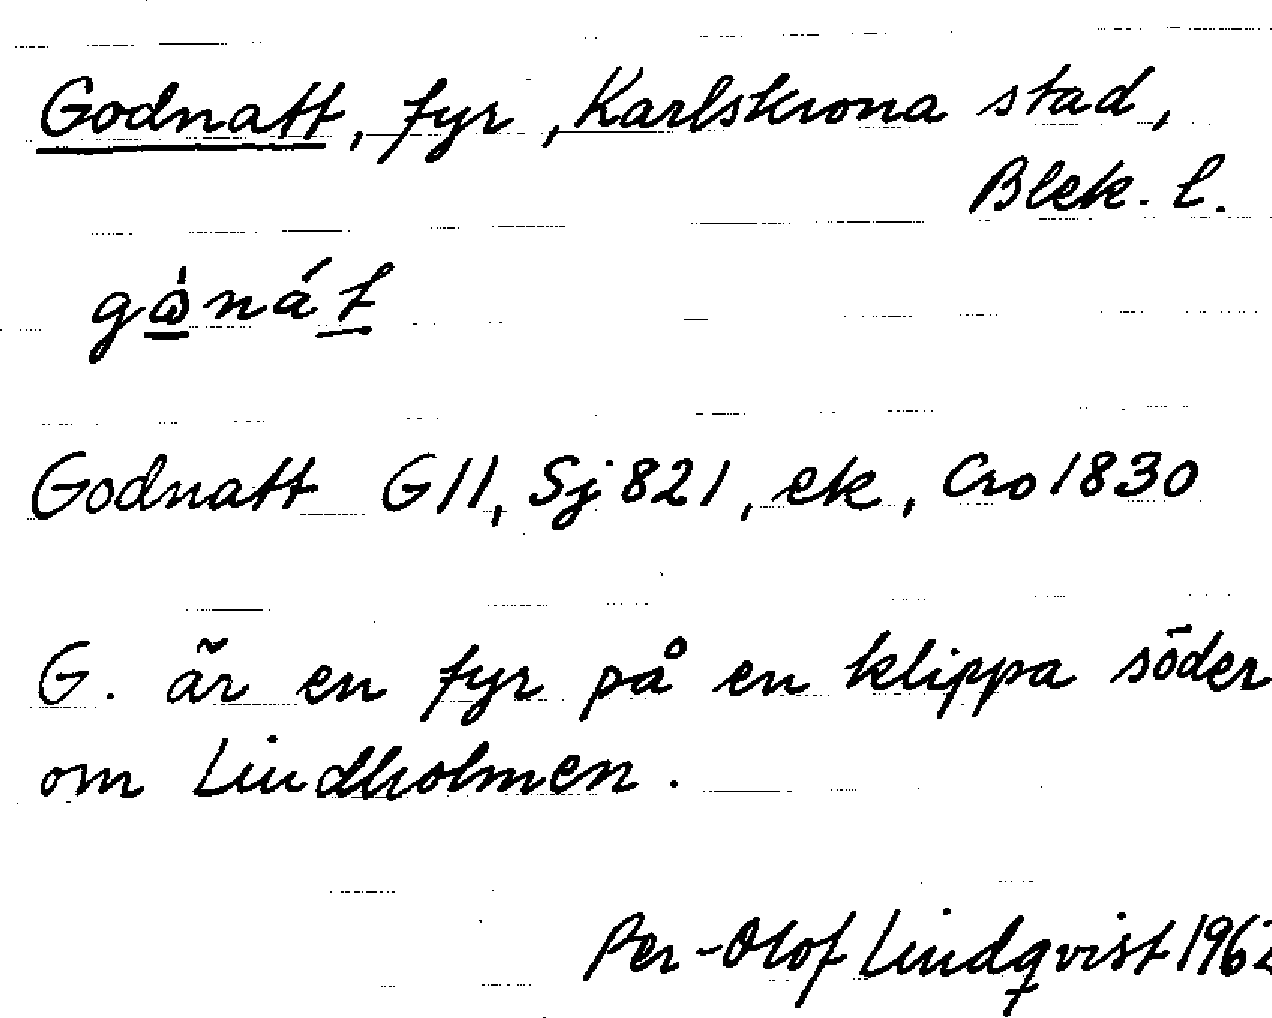 Godnatt, fyr, Karlskrona stad,
Blek. l.
Godnatt G11, Sj 821, ek, Cro 1830
G. är en fyr på en klippa söder
om Lindholmen.
Per-Olof Lindqvist 1962